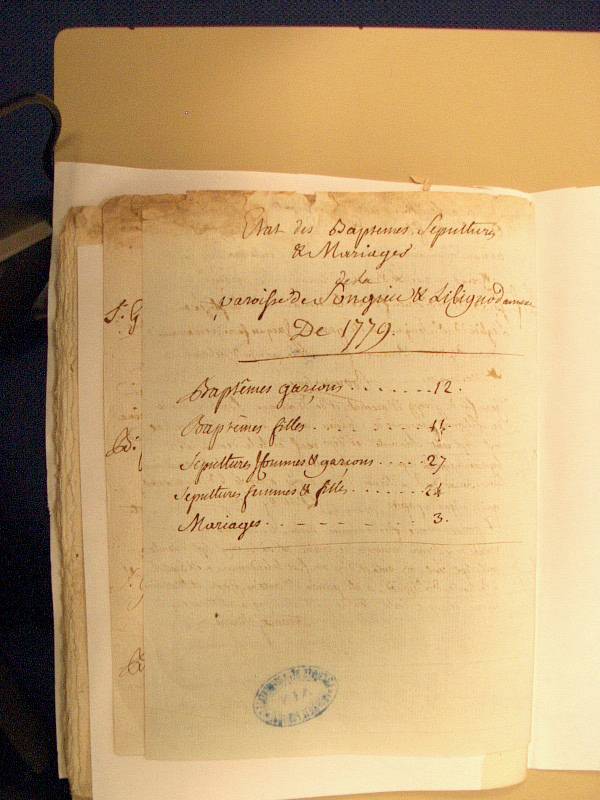 Etat des Baptemes, Sepultures
& Mariages
de la
paroisse de &
De 1779.
Baptêmes garçons . . . . . . . 12.
Baptêmes filles . . . . . . .
Sepultures hommes & garçons . . . . . 27
Sepultures femmes & filles . . . . . . . 24
Mariages . . . . . . . 3.